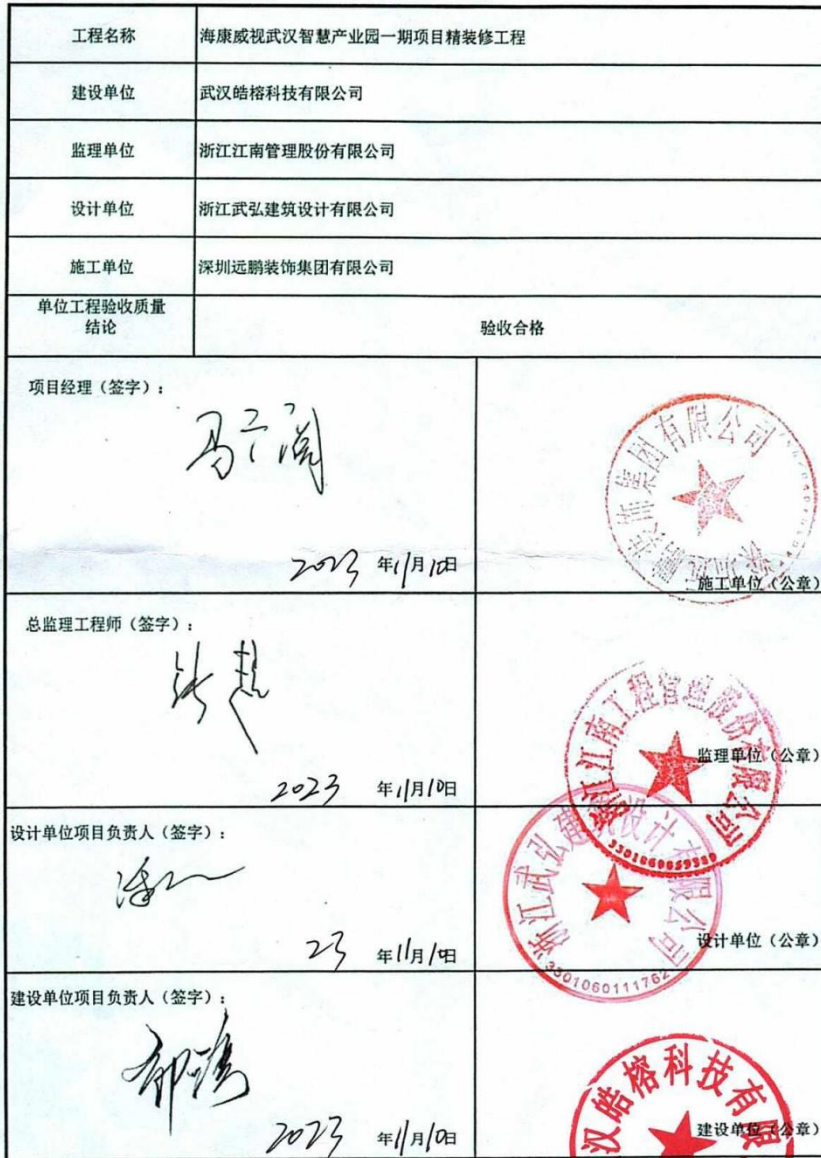 工程名称 海康威视武汉智慧产业园一期项目精装修工程
建设单位 武汉皓榕科技有限公司
监理单位 浙江江南管理股份有限公司
设计单位 浙江武弘建筑设计有限公司
施工单位 深圳远鹏装饰集团有限公司
单位工程验收质量
结论
验收合格
项目经理（签字）：
2023 年11月10日
鹏装饰集团有限公司
施工单位（公章）
总监理工程师（签字）：
2023 年11月10日
浙江江南工程管理股份有限公司
监理单位（公章）
设计单位项目负责人（签字）：
23 年11月10日
浙江武弘建筑设计有限公司
3301060111762
设计单位（公章）
建设单位项目负责人（签字）：
2023 年11月10日
汉皓榕科技有限
建设单位（公章）